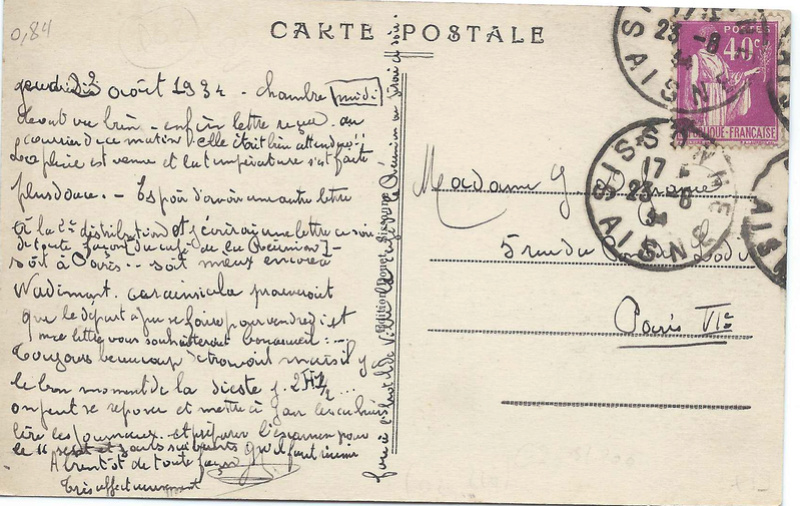 0,84
CARTE POSTALE
jeudi 23 août 1934 - chambre midi
 - enfin lettre reçue au
courrier de ce matin elle était bien attendue!!
La pluie est venue et la température s'est faite
plus douce. - Espoir d'avoir une autre lettre
à la 2e distribution et j'écrirai une lettre ce soir
de toute façon (du café de la Réunion) -
soit à Paris.. soit mieux encore à
Wadimont. car ainsi cela prouverait
que le départ a pu se faire pour vendredi et
ma lettre vous souhaiterait :-
Toujours beaucoup de travail mais il y a
le bon moment de la sieste 2H 1/2 ...
on peut se reposer et mettre à jour les cahiers
lire les journaux.. et préparer l'examen pour
le 11 sept et jours suivants qu'il faut
A bientôt de toute façon
Très affectueusement
Edition
de la Réunion
ce soir.
POSTES
40c
REPUBLIQUE-FRANÇAISE
23 -8
34
AISNE
SISSONNE
17
23 -8
34
AISNE
Madame
5 rue du de Lodi
Paris VIe